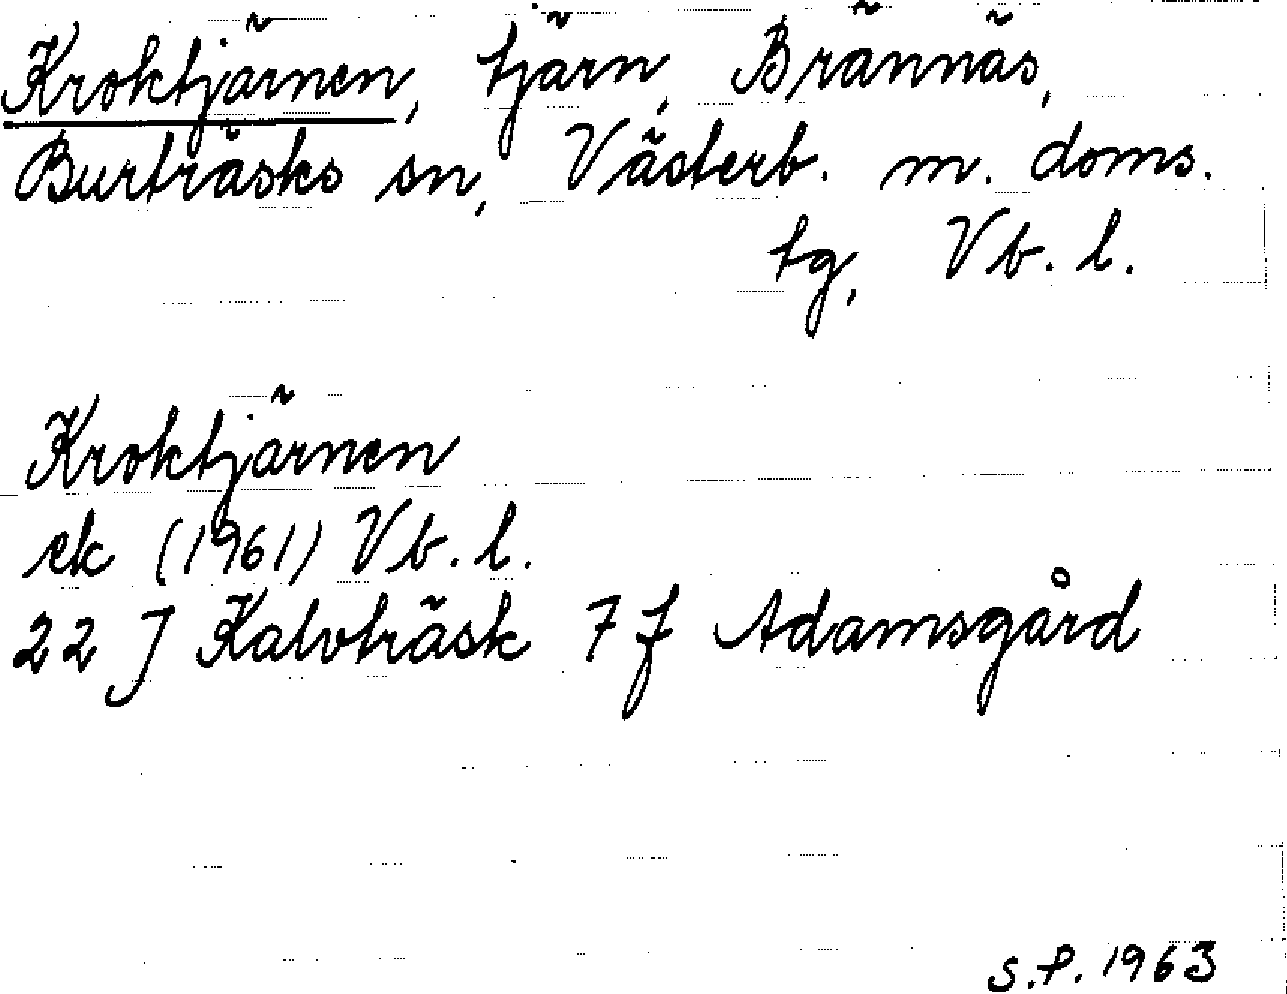 Kroktjärnen, tjärn, Brännäs,
Burträsks sn, Västerb. m. doms.
tg, Vb. l.
Kroktjärnen
ek (1961) Vb. l.
22 J Kalvträsk 7 f Adamsgård
S.P. 1963